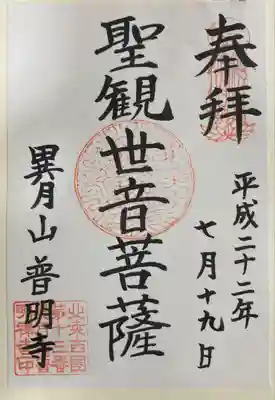 奉拝
平成二十二年
七月十九日
聖観世音菩薩
異月山普明寺